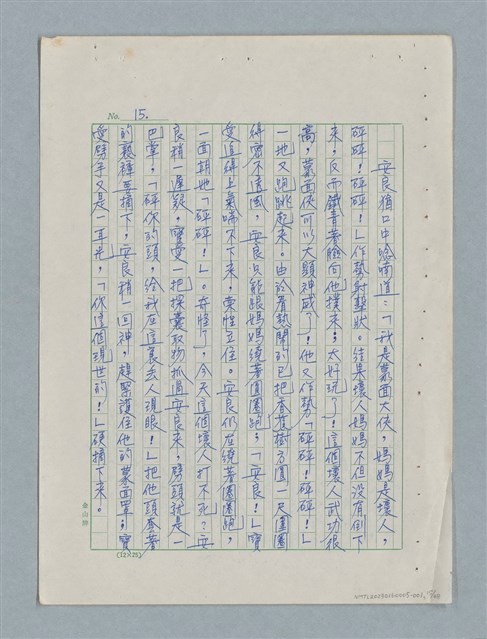 No. 15.
安良猶口中唸喃道：「我是蒙面大俠，媽媽是壞人，
砰砰！砰砰！」作勢射擊狀。結果壞人媽媽不但沒有倒下
來，反而鐵青著臉向他撲來，太好玩了！這個壞人武功很
高，蒙面俠可以大顯神威了！他又作勢「砰砰！砰砰！」
一地又跑跳起來。由於看熱鬧的已把香蕉樹方圓一尺圍圈
得密不透風，安良只能跟媽媽繞著圓圈跑，「安良！」寶
愛追得上氣喘不下來，索性立住。安良仍在繞著圈圈跑，
一面朝她「砰砰！」。奇怪了，今天這個壞人打不死？安
良稍一遲疑，寶愛一把探囊取物抓過安良來，劈頭就是一
巴掌，「砰你的頭，給我在這裏丟人現眼！」把他頭套著
的褻褲要摘下，安良稍一回神，趕緊護住他的蒙面罩，寶
愛劈手又是一耳光，「你這個現世的！」硬摘下來。
金山牌
(12×25)